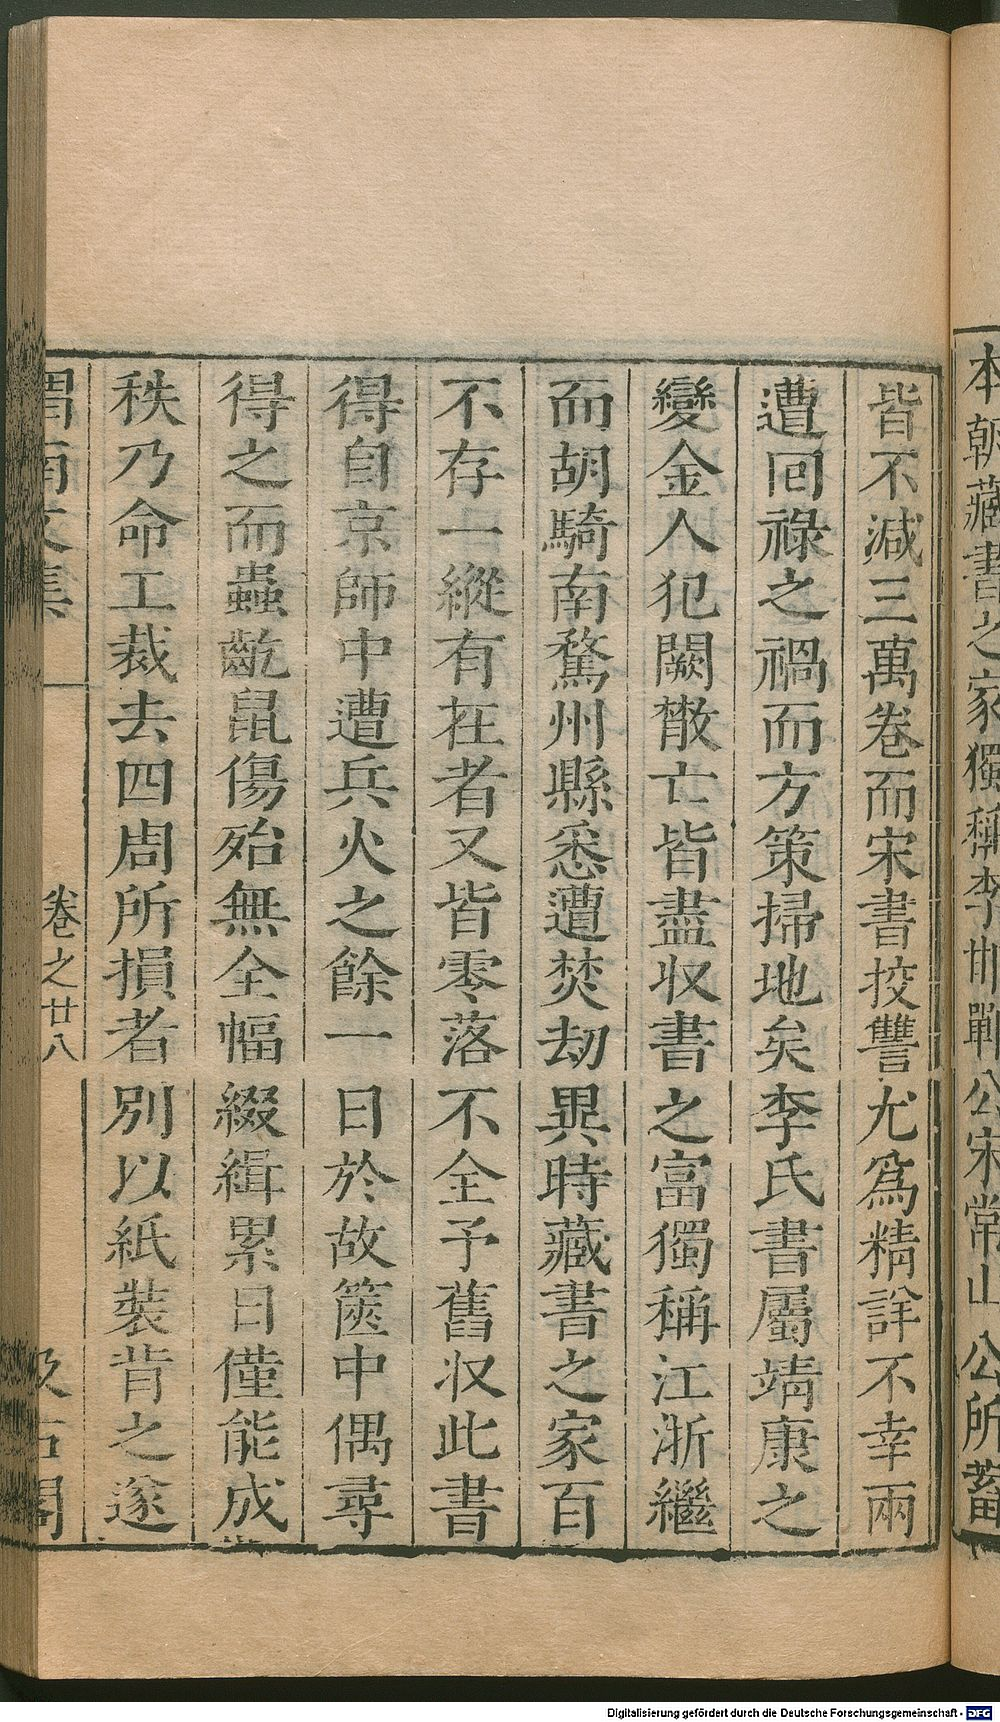 本朝藏書之家獨稱李邯鄲公宋常山公所蓄
皆不減三萬卷而宋書挍讐尤爲精詳不幸兩
遭回祿之禍而方策掃地矣李氏書屬靖康之
變金人犯闕散亡皆盡収書之富獨稱江浙繼
而胡騎南騖州縣悉遭焚刼異時藏書之家百
不存一縱有在者又皆零落不全予舊収此書
得自京師中遭兵火之餘一日於故篋中偶尋
得之而蟲齕鼠傷殆無全幅綴緝累日僅能成
秩乃命工裁去四周所損者別以紙裝背之遂
渭南文集 卷之廿八 汲古閣
Digitalisierung gefördert durch die Deutsche Forschungsgemeinschaft - DFG